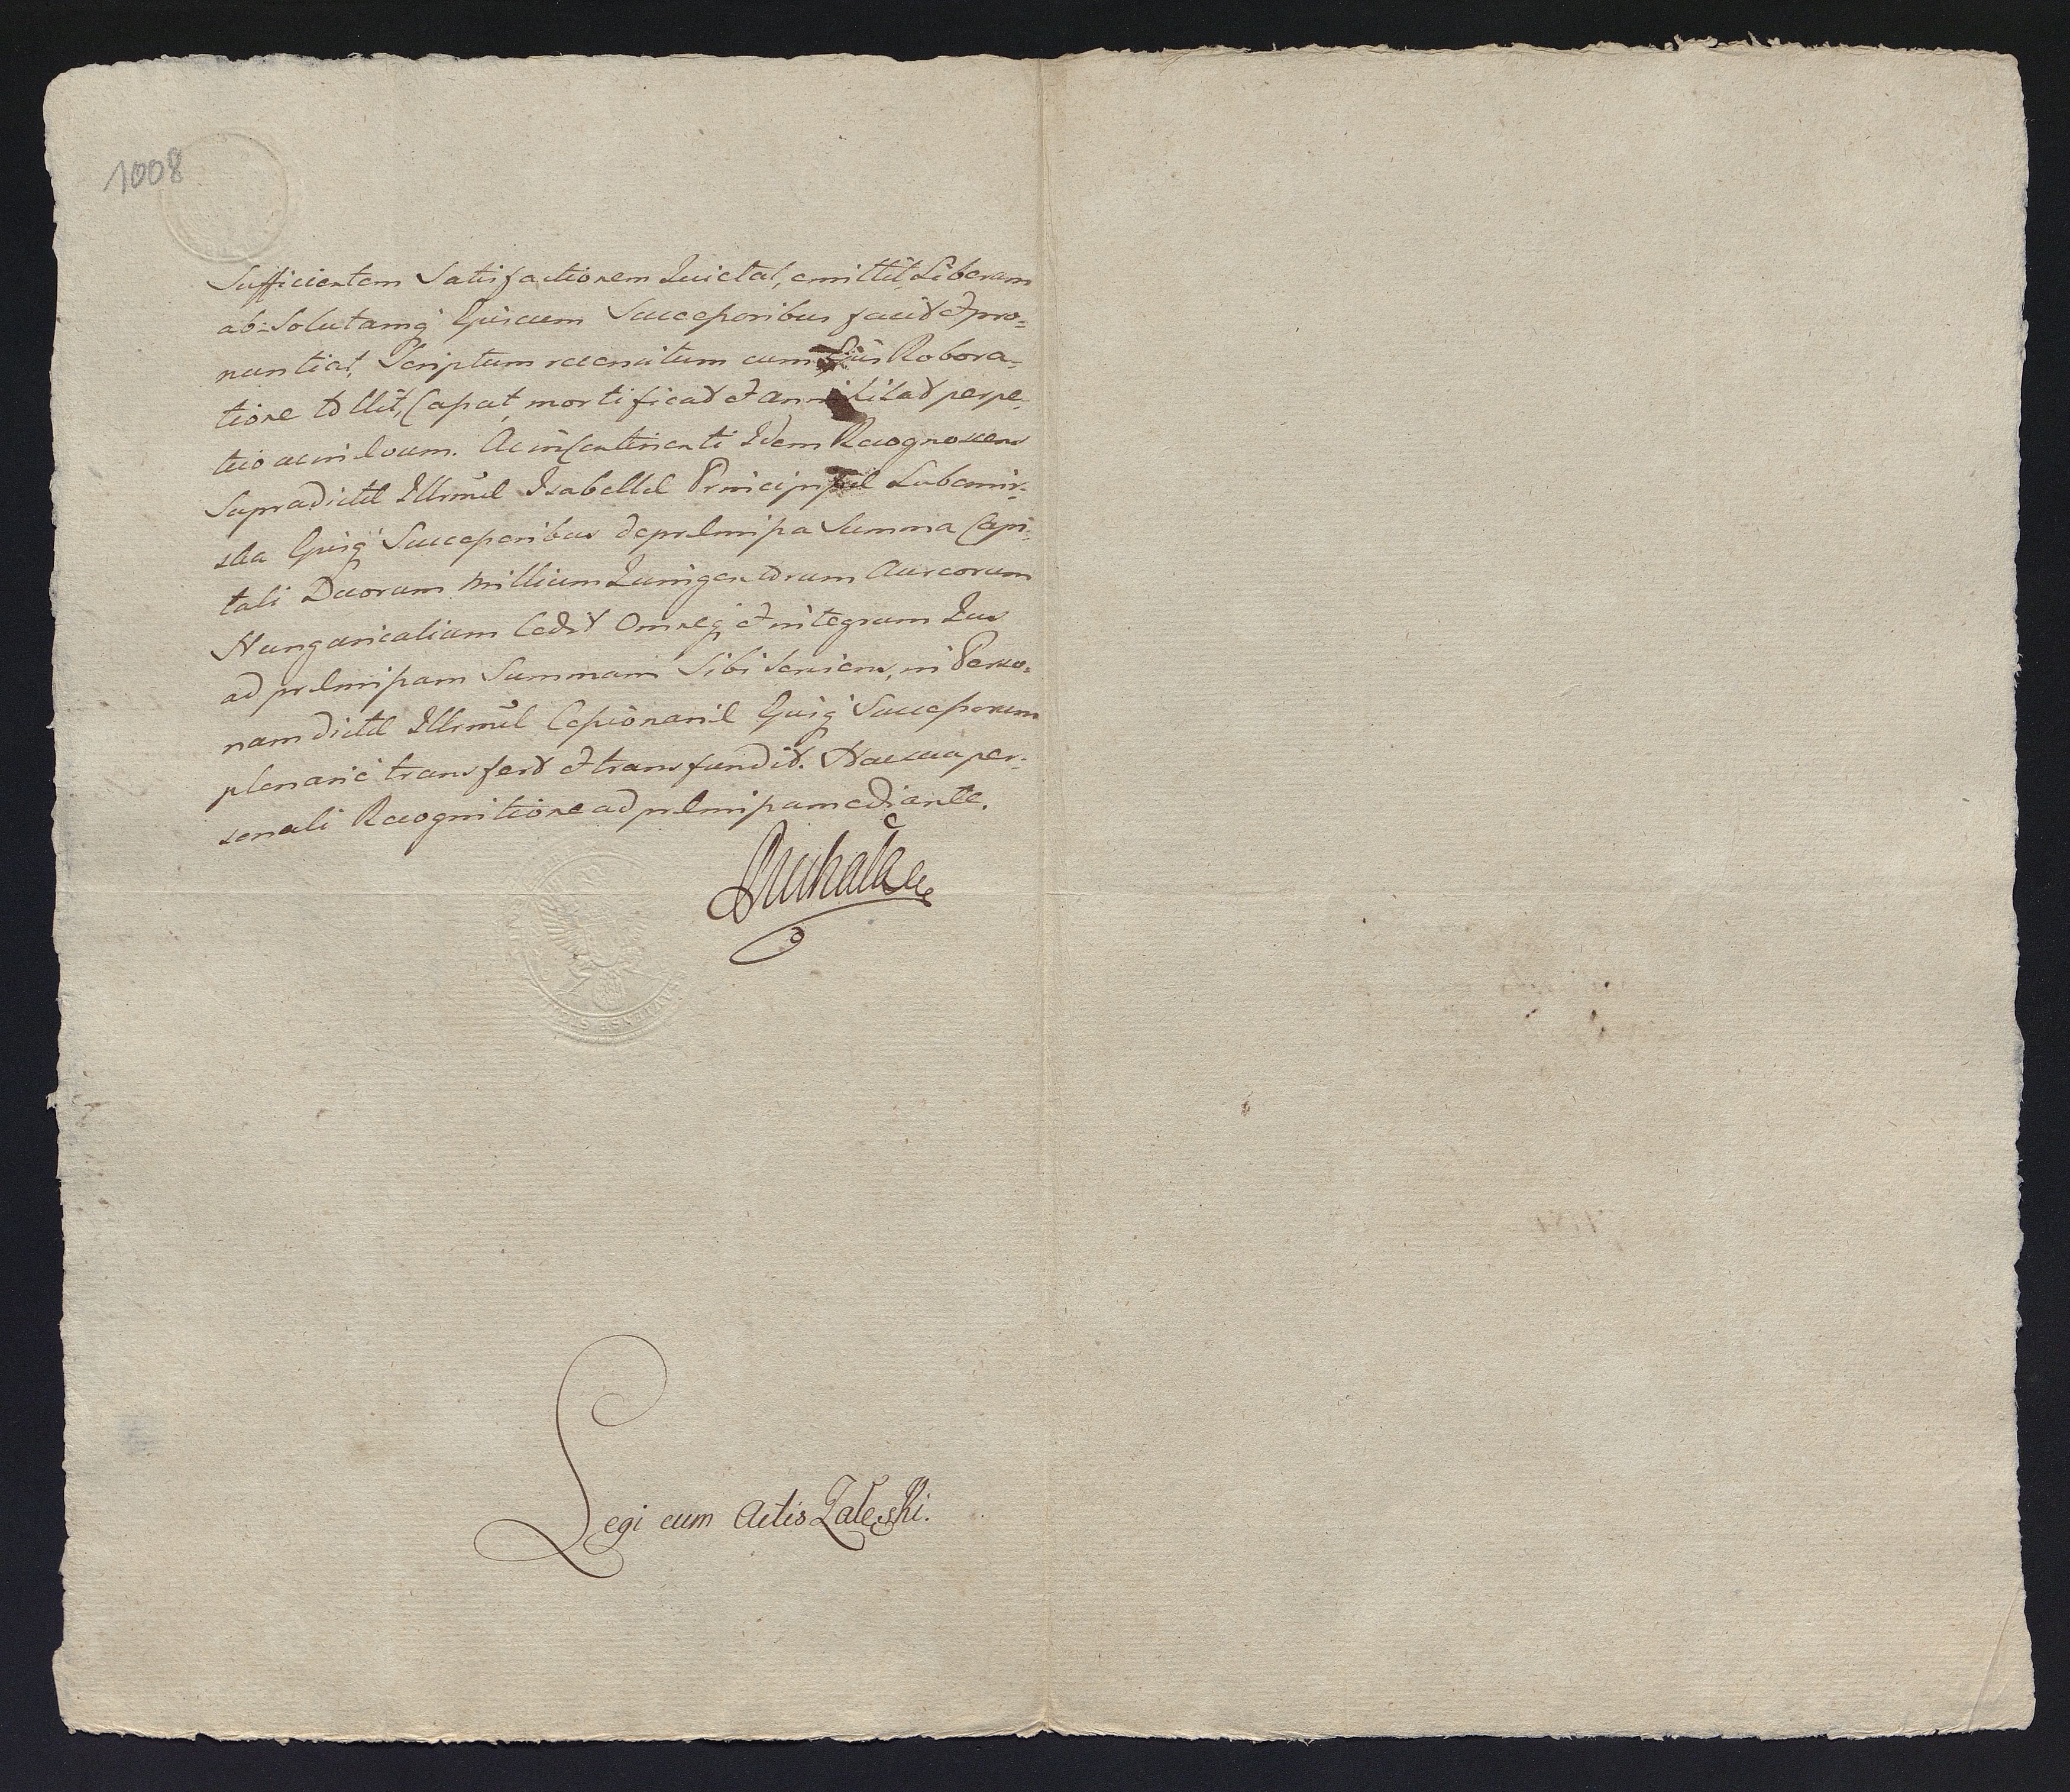 1008
Sufficientem Satisfactionem Quietat, emittit, Liberum
ab-Solutamq Ejusdem Successoribus facit et pro=
nuntiat, Scriptum recensitum cum Ejus Robora=
tione tollit, Cassat, mortificat et annihilat perpe=
tuo acin lvum. Ac in Continenti Idem Recognoscens
Supradictæ Illrmæ Isabellæ Principissæ Lubomir=
ska Ejusq Successoribus de præmissa Summa Capi=
tali Duorum Millium Quingentorum Aureorum
Hungaricalium Cedit Omneq et integrum Jus
ad præmissam Summam Sibi Serviens, in Perso=
nam dictæ Illrmæ Cessionariæ Ejusq Successorum
plenarie transfert et transfundit. Hac sua per=
sonali Recognitione ad præmissa mediante.
Legi cum Actis Zaleski.